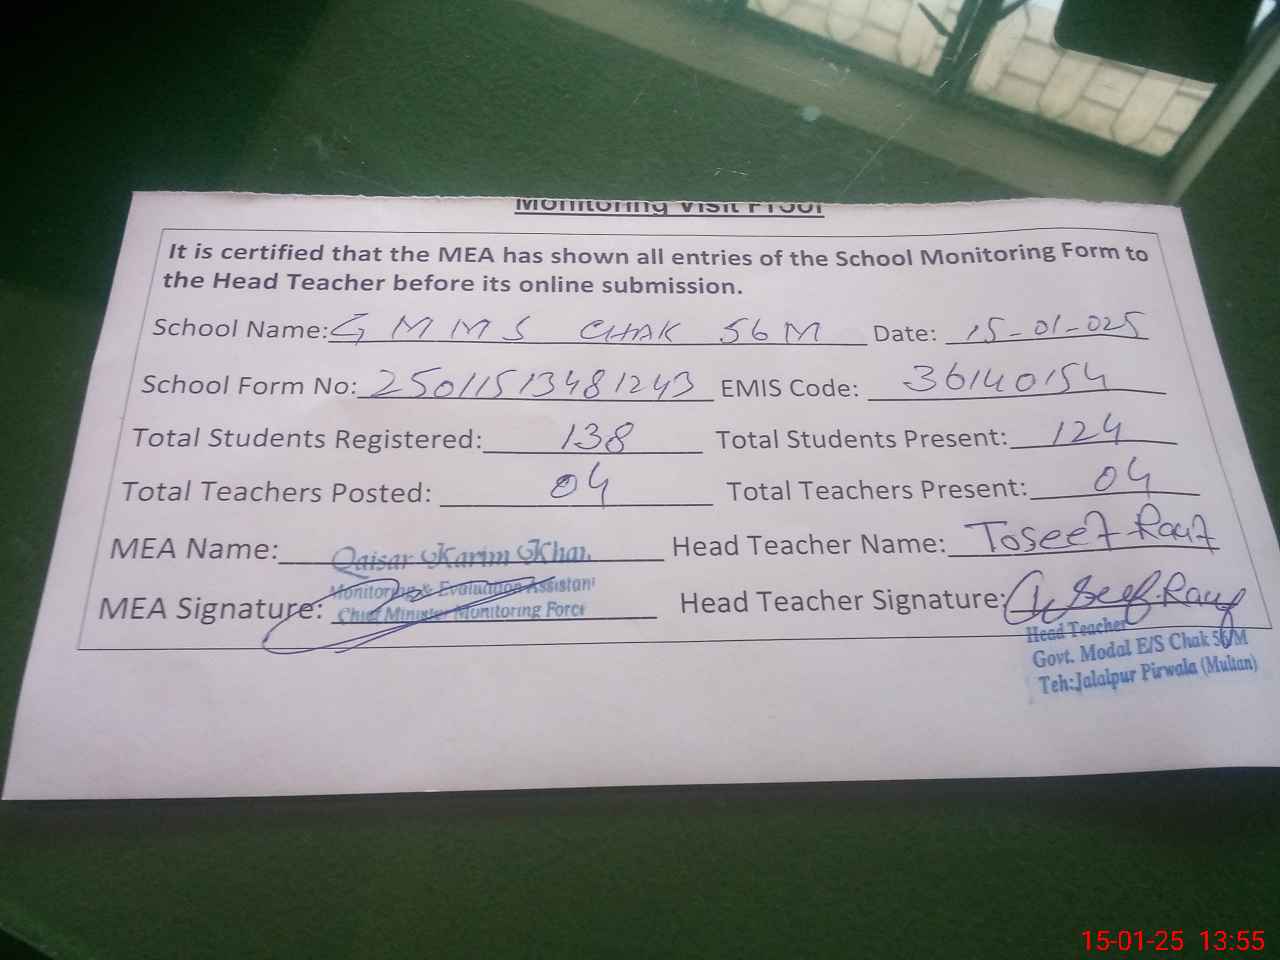 Monitoring Visit Proof
It is certified that the MEA has shown all entries of the School Monitoring Form to
the Head Teacher before its online submission.
School Name: G M M S CHAK 56 M Date: 15-01-025
School Form No: 25011513481243 EMIS Code: 36140154
Total Students Registered: 138 Total Students Present: 124
Total Teachers Posted: 04 Total Teachers Present: 04
MEA Name: Qaisar Karim Khan Head Teacher Name: Toseef Rauf
Monitoring & Evaluation Assistant
MEA Signature: Chief Minister Monitoring Force Head Teacher Signature: Rauf
Head Teacher
Govt. Modal E/S Chak 56/M
Teh:Jalalpur Pirwala (Multan)
15-01-25 13:55